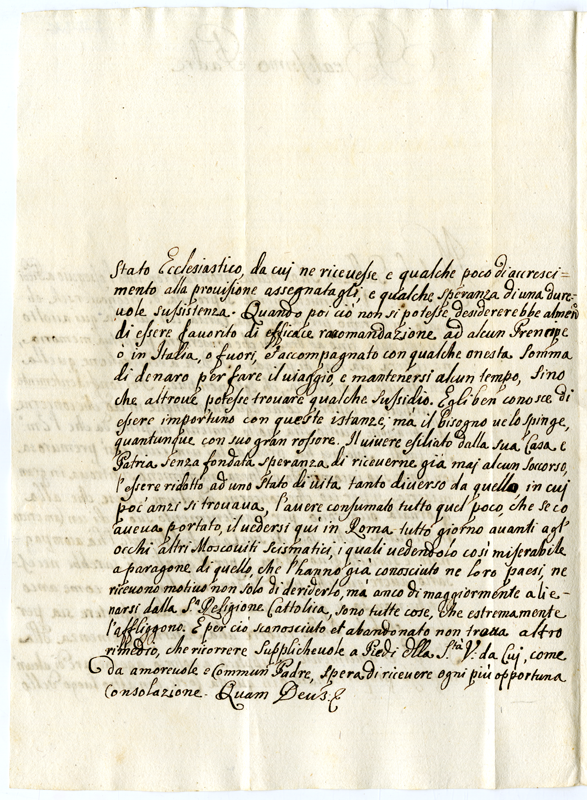 Stato Ecclesiastico, da cui ne riceuesse e qualche poco di accresci=
mento alla prouisione assegnatagli, e qualche speranza di una dure=
uole sussistenza. Quando poi ciò non si potesse, desidererebbe almeno
di essere fauorito di efficace racomandazione ad alcun Prencipe
ò in Italia, o fuori, et accompagnato con qualche onesta somma
di denaro per fare il uiaggio, e mantenersi alcun tempo, sino
che altroue potesse trouare qualche sussidio. Egli ben conosce di
essere importuno con queste istanze, mà il bisogno ue lo spinge,
quantunque con suo gran rossore. Il uiuere esiliato dalla sua Casa e
Patria senza fondata speranza di riceuerne già mai alcun soccorso,
l'essere ridotto ad uno stato di uita tanto diuerso da quello in cui
poc'anzi si trouaua, l'auere consumato tutto quel poco, che seco
aueua portato, il uedersi quì in Roma tutto giorno auanti agl'
occhi altri Moscouiti Scismatici, i quali uedendolo così miserabile
a paragone di quello, che l'hanno già conosciuto ne loro paesi, ne
riceuono motiuo non solo di deriderlo, mà anco di maggiormente alie-
narsi dalla S.ª Religione Cattolica, sono tutte cose, che estremamente
l'affliggono. E per ciò sconosciuto et abandonato non troua altro
rimedio, che ricorrere supplicheuole a Piedi dlla S.tà V. da Cui, come
da amoreuole e Commun Padre, spera di riceuere ogni più opportuna
Consolazione. Quam Deus &